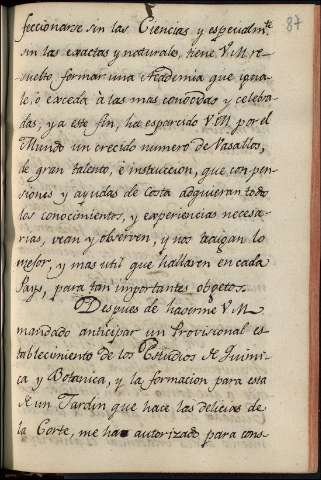 87
feccionarse sin las Ciencias y especialmte.
sin las exactas y naturales, tiene V.M. re-
suelto formar una Academia que igua-
le, o exceda à las mas conocidas y celebra-
das, y a este fin, ha esparcido V.M. por el
Mundo un crecido numero de Vasallos,
de gran talento, è instruccion, que con pen-
siones y ayudas de Costa adquieran todos
los conocimientos, y experiencias necesa-
rias, vean y observen, y nos traigan lo
mejor, y mas util que hallasen en cada
Pays, para tan importantes objetos.
Despues de haverme V.M.
mandado anticipar un Provisional es-
tablecimiento de los Estudios de Quimi-
ca y Botanica, y la formacion para esta
de un Jardin que hace las delicias de
la Corte, me ha autorizado para cons-